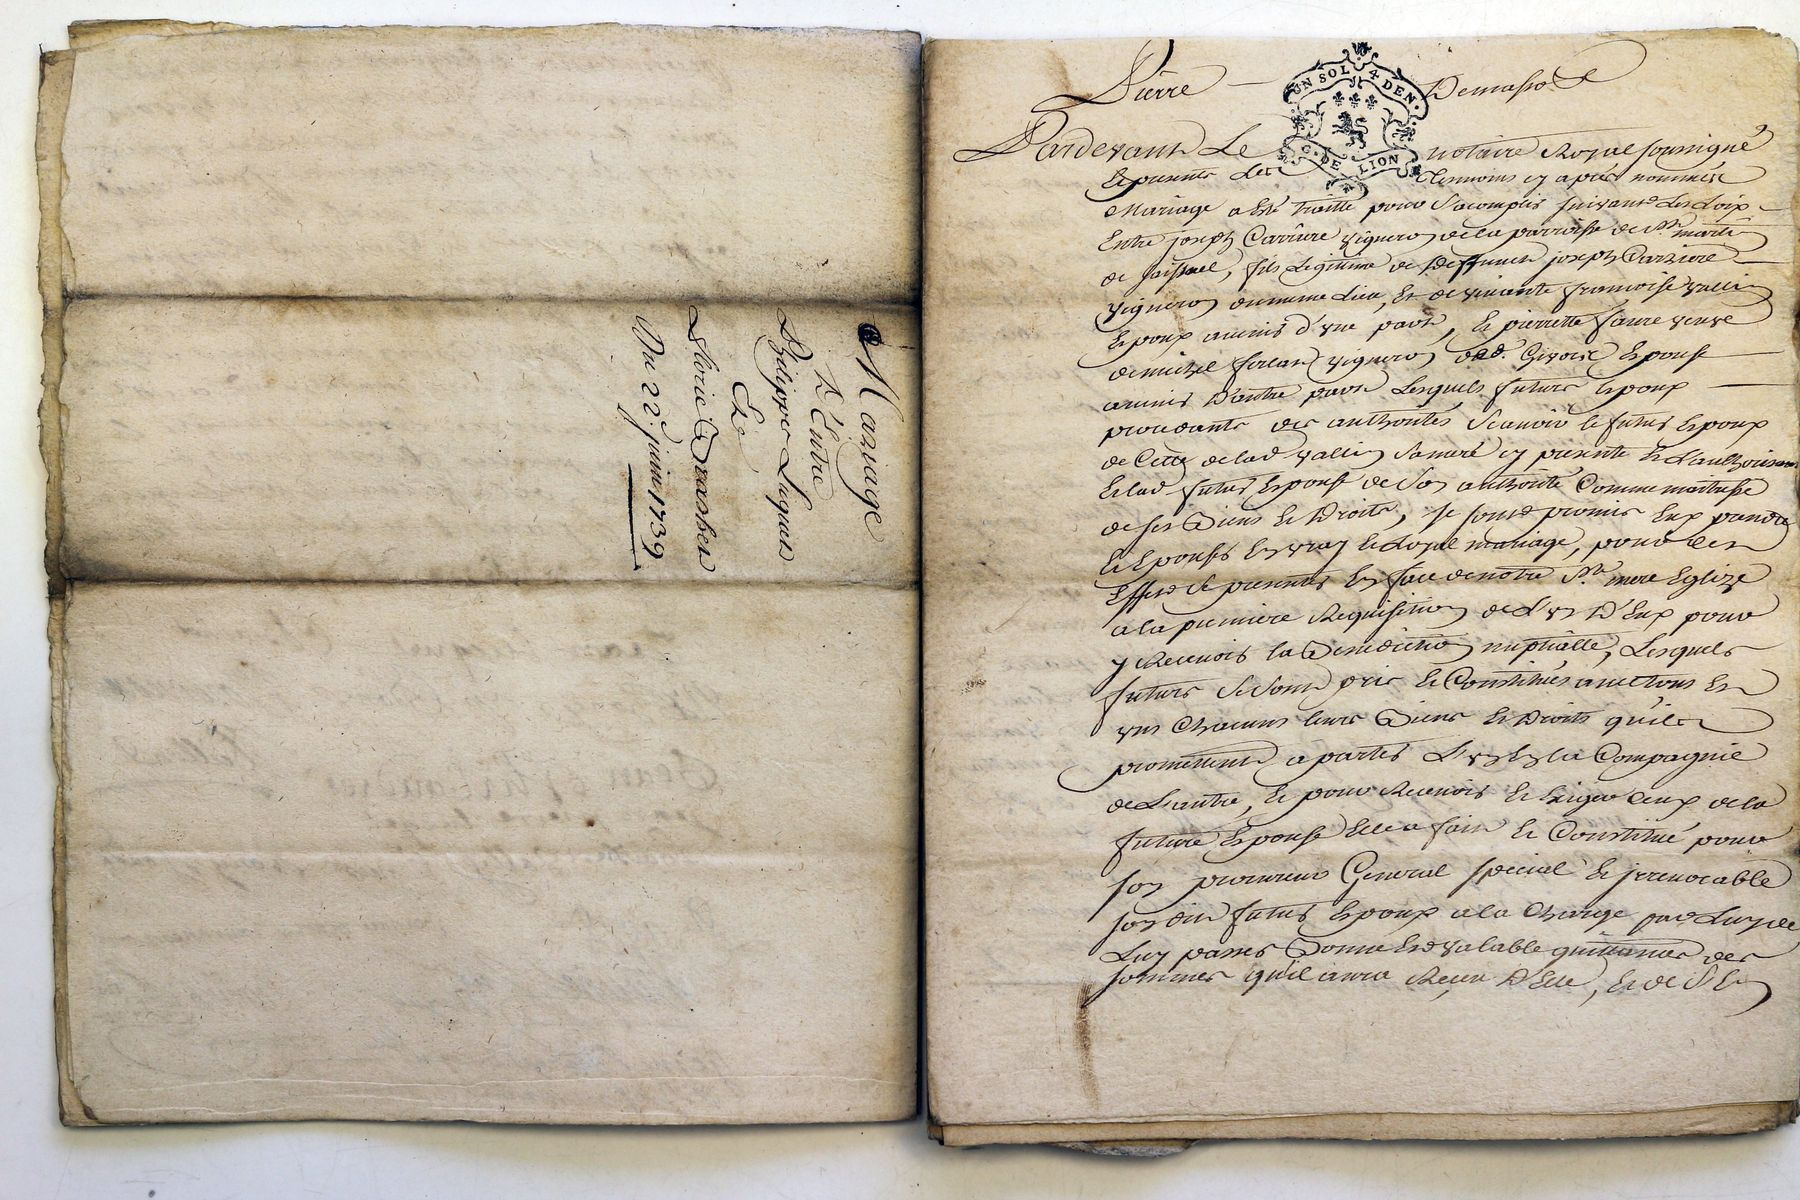 Mariage
D'Entre
Philippes Luquet
Et
Florie
Du 22e. juin 1739
Pierre
UN SOL 4 DEN.
G. DE LION
Pardevant Le notaire Royal soussigné
Et presents Les tesmoins cy apres nommés
Mariage a Esté traitté pour s'acomplir suivant Les Loix
Entre joseph Carriere vigneron de la parroisse de St. martin
de fils Legittime de deffunct joseph Carriere
vigneron du meme Lieu, Et de vincente francoise vallin
Epoux avenir d'vne part, Et pierrette faure veuve
de michel vigneron dud. Givors Epouse
avenir D'autre part Lesquels futurs Epoux
procedants des authorités scavoir le futur Epoux
de Cette de lad vallin sa mere cy presente Et L'authorisant
Et lad. future Epouse de son authorité Comme maitresse
de ses Biens Et Droits, se sont promis Eux prendre
Et Epouser En vray Et Loyal mariage, pour Cet
Effect se presenter En face de notre Ste. mere Eglize
a la premiere Requisition de L'un D'Eux pour
y Recevoir la Benediction nuptialle, Lesquels
futurs se sont pris Et Constitués avec tous Et
vns Chacuns leurs Biens Et Droits qu'ils
promettent aporter L'vn En la Compagnie
de L'autre, Et pour Recevoir Et Exiger Ceux de la
future Epouse Elle a fait Et Constitué pour
son procureur General special Et jrrevocable
son dit futur Epoux a la Charge par Luy de
Luy passer Bonne Et valable quittance des
sommes qu'il aura Receu D'Elle, Et de S En